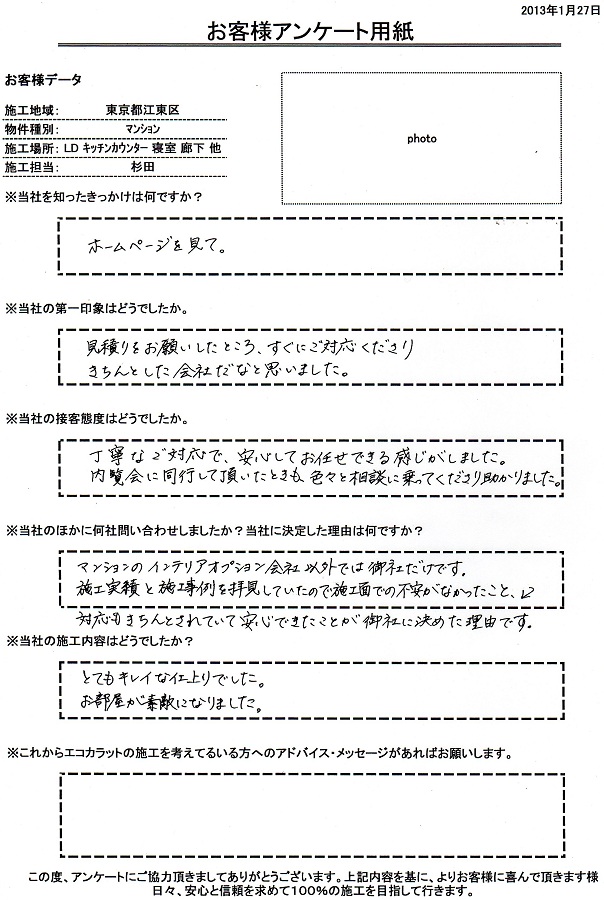 2013年1月27日
お客様アンケート用紙
お客様データ
施工地域: 東京都江東区
物件種別: マンション
施工場所: LD キッチンカウンター 寝室 廊下 他
施工担当: 杉田
photo
※当社を知ったきっかけは何ですか？
ホームページを見て。
※当社の第一印象はどうでしたか。
見積りをお願いしたところ、すぐにご対応くださり
きちんとした会社だなと思いました。
※当社の接客態度はどうでしたか。
丁寧なご対応で、安心してお任せできる感じがしました。
内覧会に同行して頂いたときも、色々と相談に乗ってくださり助かりました。
※当社のほかに何社問い合わせしましたか？当社に決定した理由は何ですか？
マンションのインテリアオプション会社以外では御社だけです。
施工実績と施工事例を拝見していたので施工面での不安がなかったこと、
対応もきちんとされていて安心できたことが御社に決めた理由です。
※当社の施工内容はどうでしたか？
とてもキレイな仕上りでした。
お部屋が素敵になりました。
※これからエコカラットの施工を考えてるいる方へのアドバイス・メッセージがあればお願いします。
この度、アンケートにご協力頂きましてありがとうございます。上記内容を基に、よりお客様に喜んで頂きます様
日々、安心と信頼を求めて100％の施工を目指して行きます。